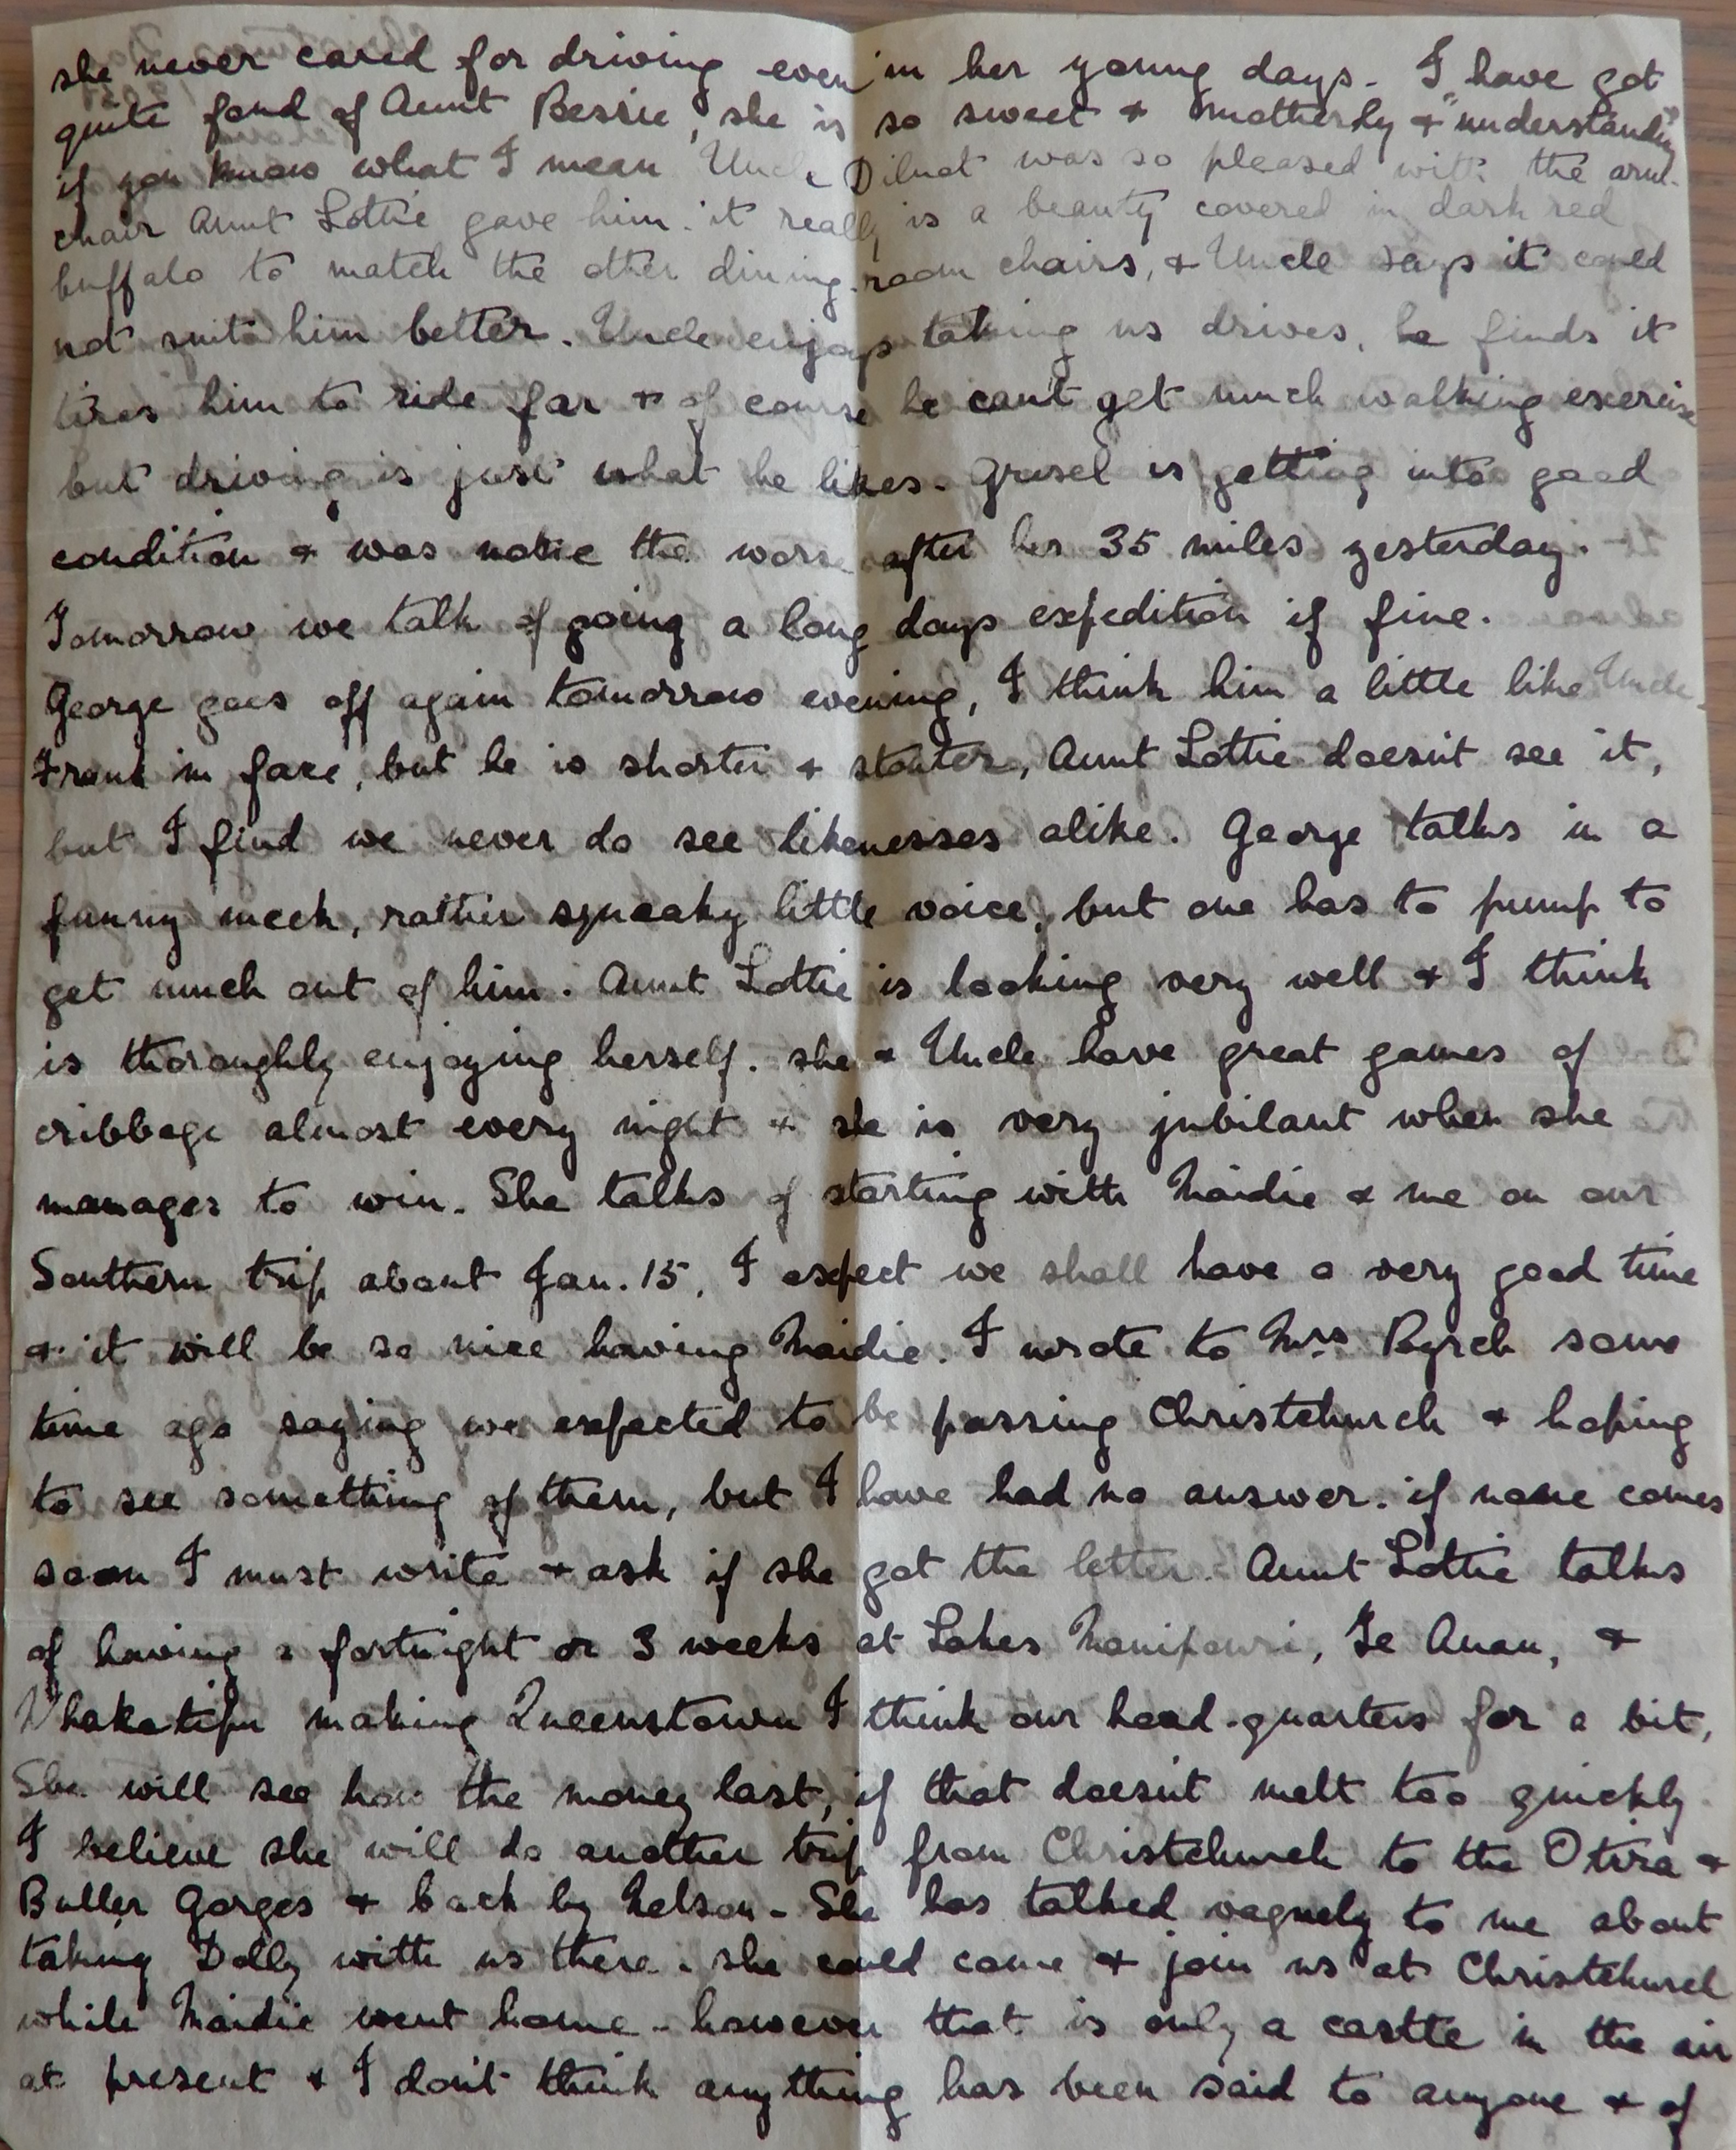 she never cared for driving even in her young days. I have got
quite fond of Aunt Bessie, she is so sweet & motherly & "understanding"
if you know what I mean Uncle Dilnot was so pleased with the arm-
chair Aunt Lottie gave him. it really is a beauty covered in dark red
buffalo to match the other dining-room chairs, & Uncle says it could
not suit him better. Uncle enjoys taking us drives, he finds it
tires him to ride far & of course he can't get much walking exercise
but driving is just what he likes. Grisel is getting into good
condition & was none the worse after her 35 miles yesterday.
Tomorrow we talk of going a long days expedition if fine.
George goes off again tomorrow evening, I think him a little like Uncle
Frank in face, but he is shorter & stouter, Aunt Lottie doesn't see it,
but I find we never do see likenesses alike. George talks in a
funny meek, rather squeaky little voice, but one has to pump to
get much out of him. Aunt Lottie is looking very well & I think
is thoroughly enjoying herself. she & Uncle have great games of
cribbage almost every night & she is very jubilant when she
manages to win. She talks of starting with Maidie & me on our
Southern trip about Jan. 15, I expect we shall have a very good time
& it will be so nice having Maidie. I wrote to Mrs Byrch some
time ago saying we expected to be passing Christchurch & hoping
to see something of them, but I have had no answer. if none comes
soon I must write & ask if she got the letter. Aunt Lottie talks
of having a fortnight or 3 weeks at Lakes Manipouri, Te Anau, &
Whakatipu making Queenstown I think our head-quarters for a bit,
She will see how the money last, if that doesn't melt too quickly
I believe she will do another trip from Christchurch to the Otira &
Buller Gorges & back by Nelson - She has talked vaguely to me about
taking Dolly with us there. she could come & join us at Christchurch
while Maidie went home - however that is only a castle in the air
at present & I don't think anything has been said to anyone & of